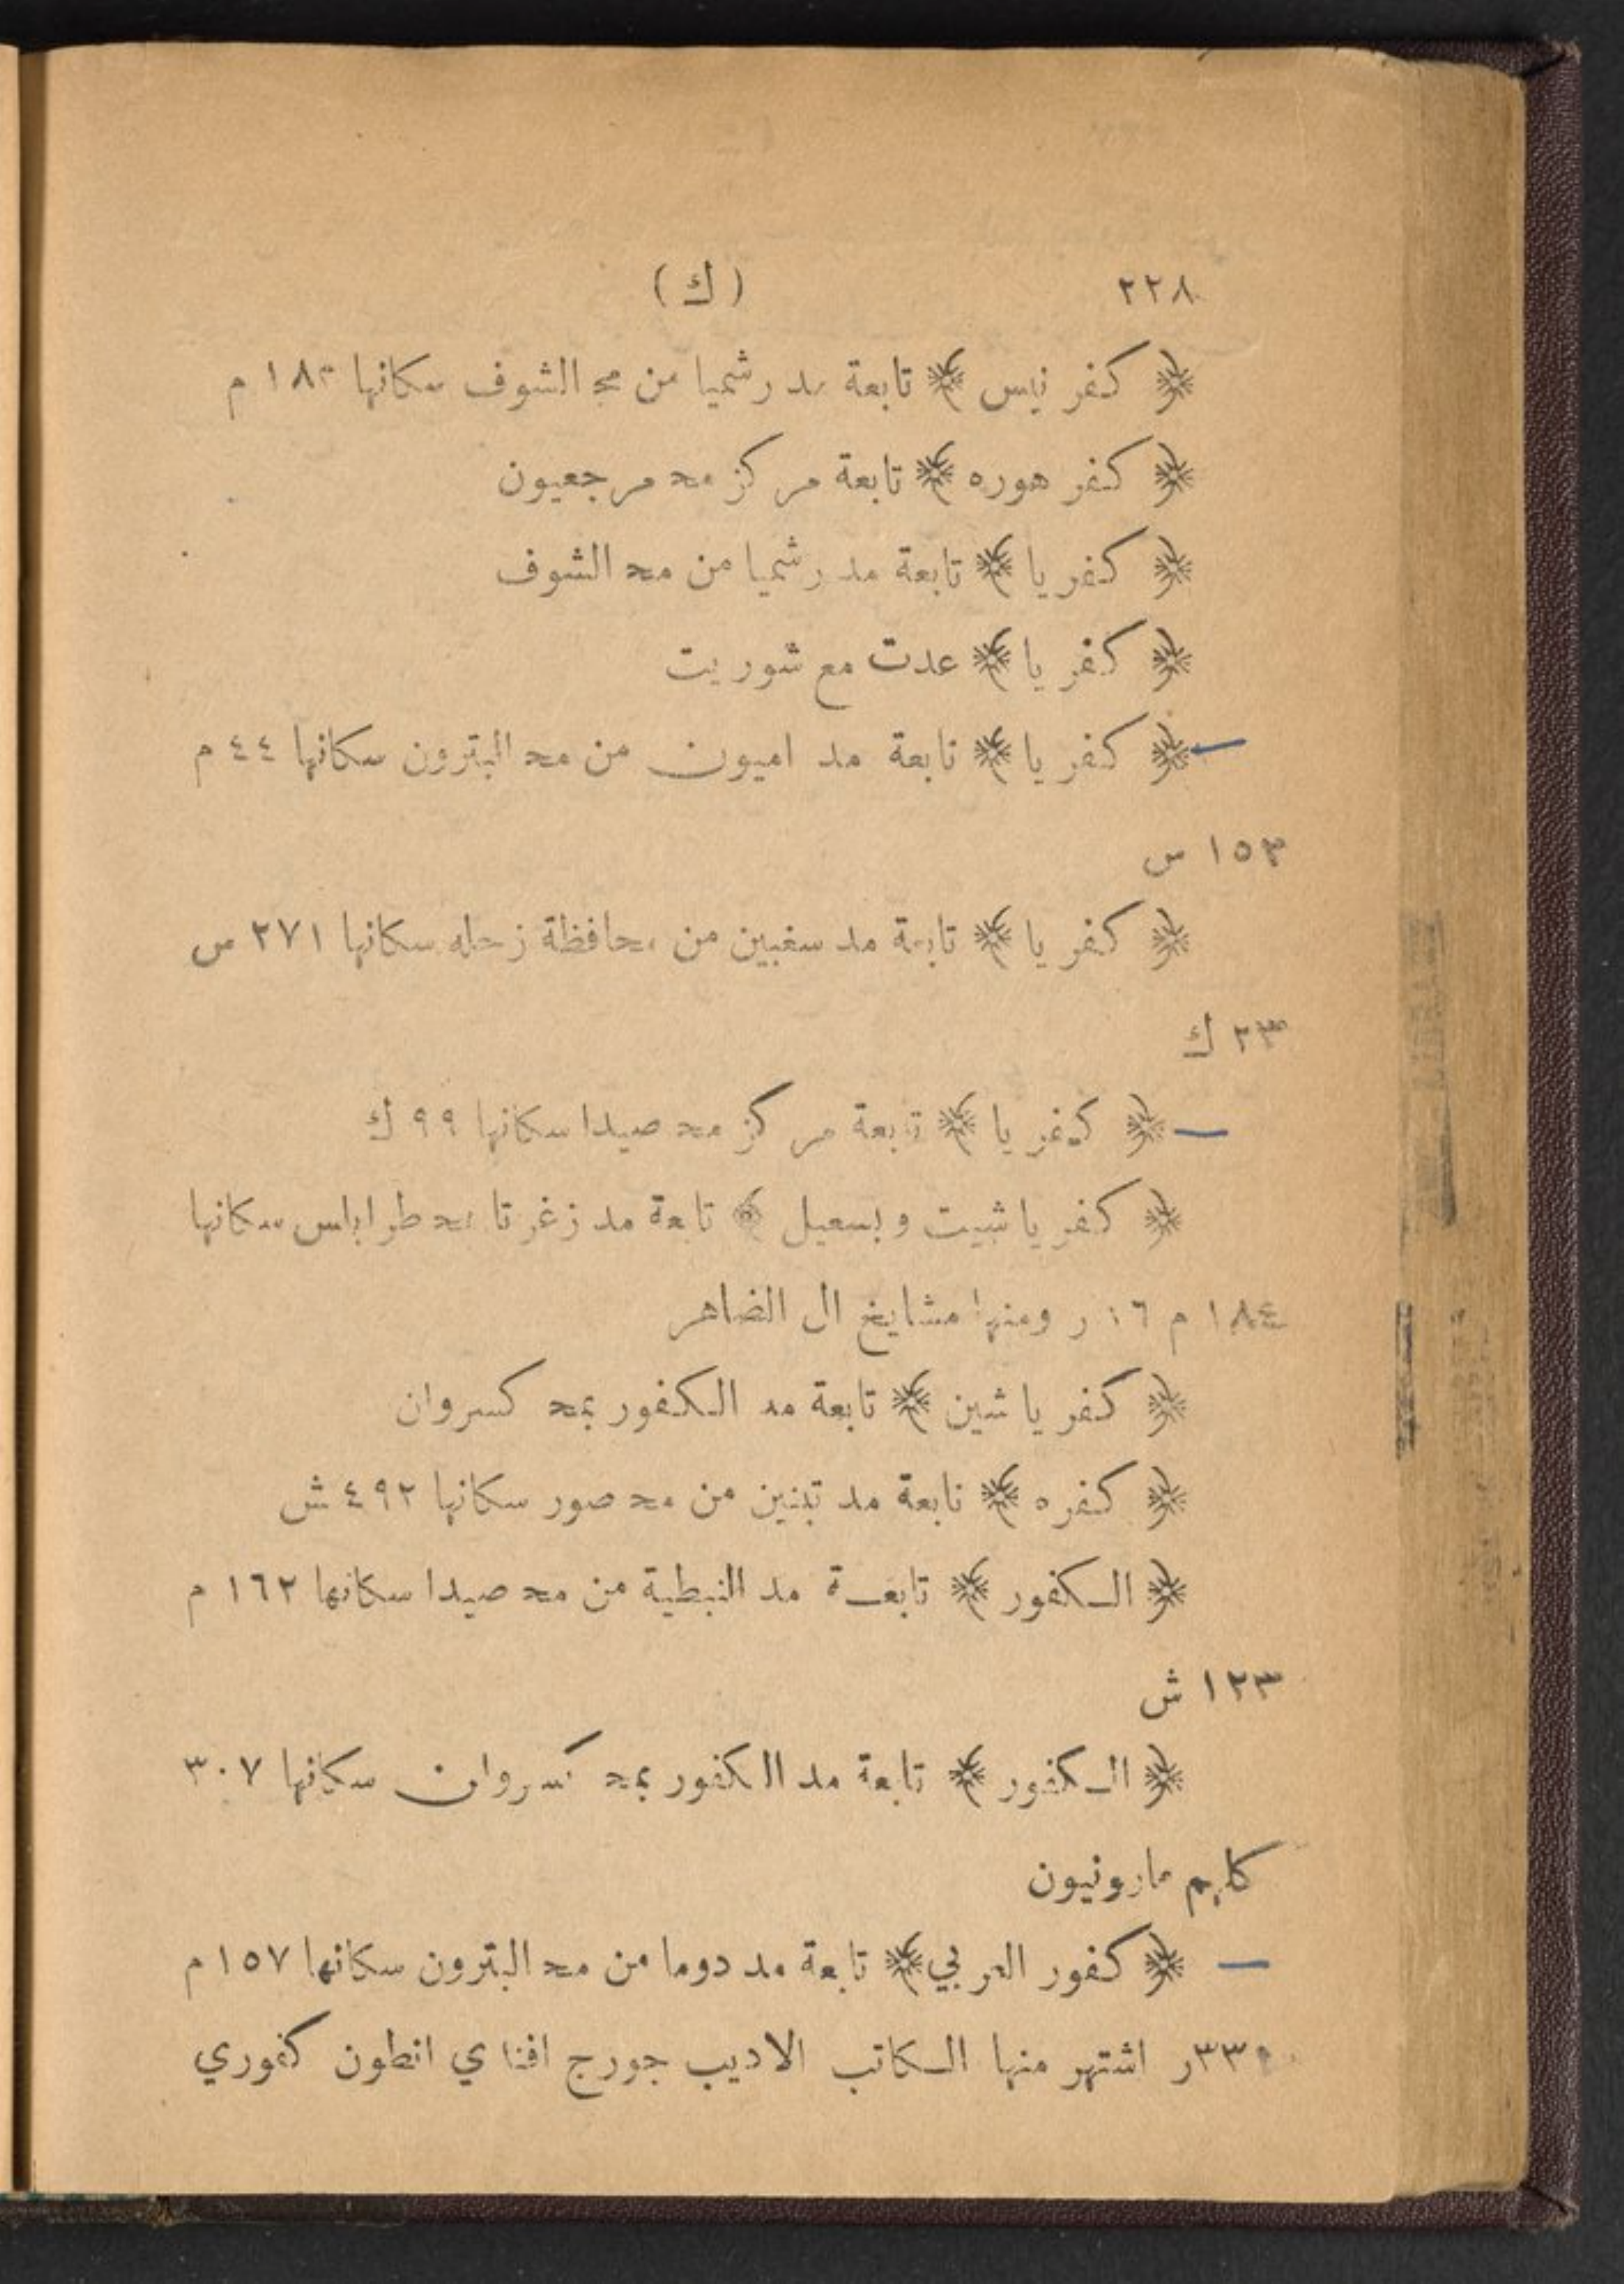 ٢٢٨ (ك)
﴿ كفر نيس ﴾ تابعة مد رشميا من مح الشوف سكانها ١٨٣ م
﴿ كفر هوره ﴾ تابعة مركز مح مرجعيون
﴿ كفر يا ﴾ تابعة مد رشميا من مح الشوف
﴿ كفر يا ﴾ عدت مع شوريت
﴿ كفر يا ﴾ تابعة مد اميون من مح البترون سكانها ٤٤ م
١٥٣ س
﴿ كفر يا ﴾ تابعة مد سغبين من محافظة زحله سكانها ٢٧١ س
٢٣ ك
﴿ كفر يا ﴾ تابعة مركز مح صيدا سكانها ٩٩ ك
﴿ كفر ياشيت وبسعيل ﴾ تابعة مد زغرتا بمح طرابلس سكانها
١٨٤ م ١٦ ر ومنها مشايخ ال الضاهر
﴿ كفر ياشين ﴾ تابعة مد الكفور بمح كسروان
﴿ كفره ﴾ تابعة مد تبنين من مح صور سكانها ٤٩٢ ش
﴿ الكفور ﴾ تابعة مد النبطية من مح صيدا سكانها ١٦٢ م
١٢٣ ش
﴿ الكفور ﴾ تابعة مد الكفور بمح كسروان سكانها ٣٠٧
كلهم مارونيون
﴿ كفور العربي ﴾ تابعة مد دوما من مح البترون سكانها ١٥٧ م
اشتهر منها الكاتب الاديب جورج افندي انطون كفوري